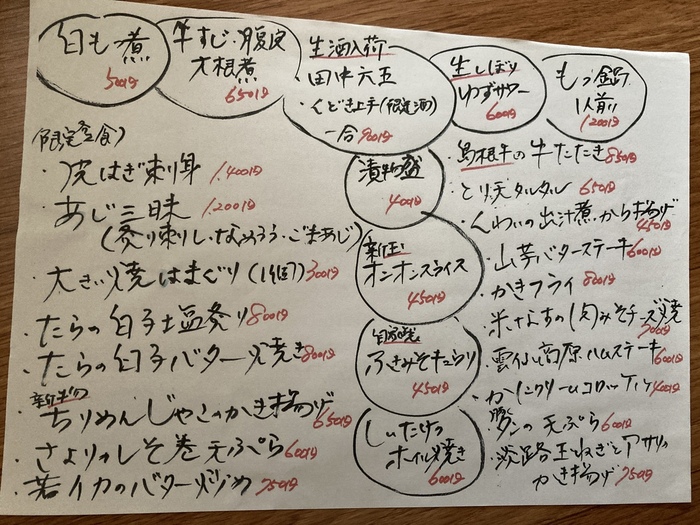 白もつ煮
500円
牛すじ・腹皮
大根煮
650円
生酒入荷
田中六五
・くどき上手(限定酒)
一合900円
生しぼり
ゆずサワー
600円
もつ鍋
1人前
1200円
限定立食
・皮はぎ刺身 1,400円
・あじ三昧 1,200円
(炙り刺し・なめろう・ごまあじ)
・大きい焼はまぐり(1個)300円
・たらの白子塩炙り800円
・たらの白子バター焼き800円
新ものちりめんじゃこのかき揚げ650円
・さよりのしそ巻天ぷら600円
・若イカのバター炒め750円
漬物盛
400円
新玉
オニオンスライス
450円
自家
ふきみそたらり
450円
しいたけの
ホイル焼き
600円
・島根牛の牛たたき850円
・とり天タルタル 650円
・んわいの出汁煮から揚げ450円
・山芋バターステーキ600円
・かきフライ 800円
・米なすの肉みそチーズ焼
700円
・雲仙高原ハムステーキ600円
・かにクリームコロッケ400円
・の天ぷら600円
・淡路玉ねぎとアサリの
かき揚げ750円